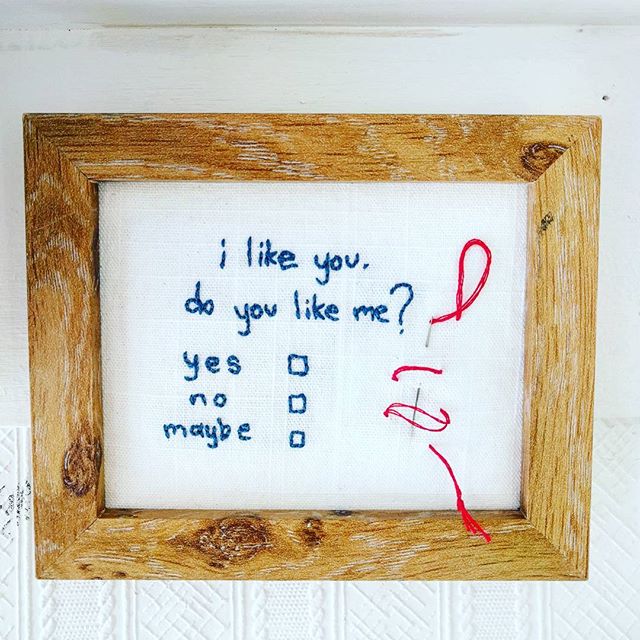 i like you.
do you like me?
yes
no
maybe